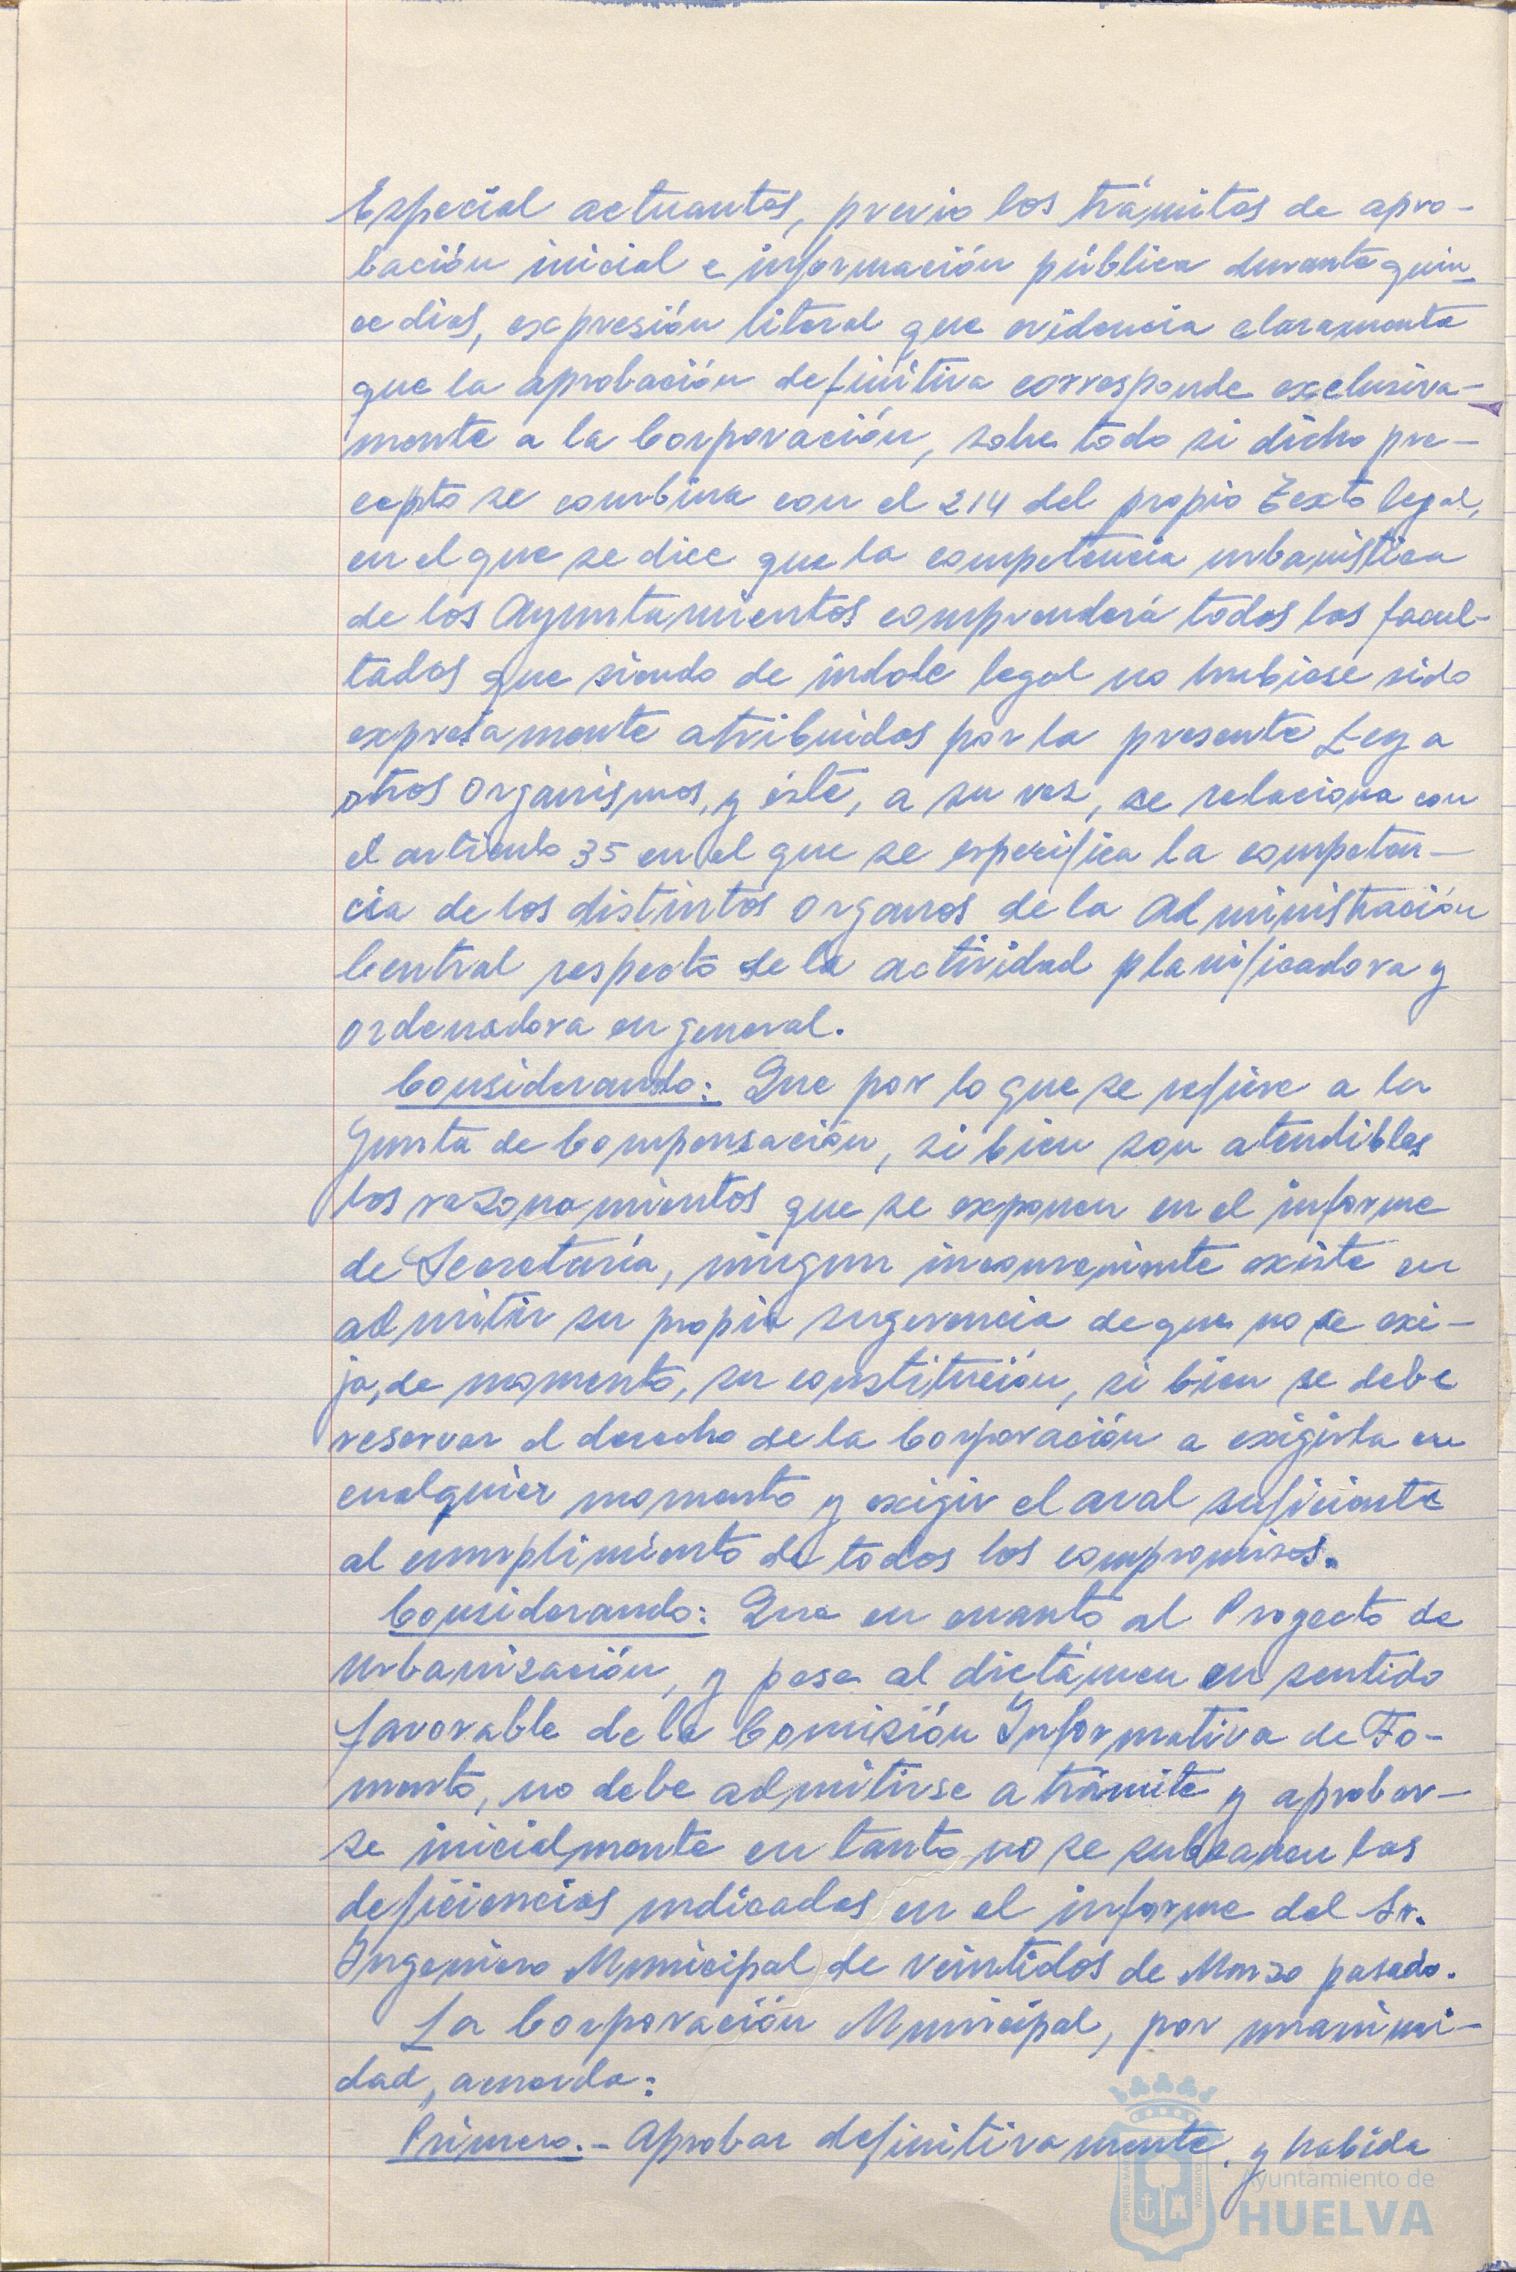 Especial actuantes, previo los trámites de apro-
bación inicial e información pública durante quin-
ce dias, expresión literal que evidencia claramente
que la aprobación definitiva corresponde exclusiva-
mente a la Corporación, sobre todo si dicho pre-
cepto se combina con el 214 del propio Texto legal,
en el que se dice que la competencia urbanística
de los Ayuntamientos comprenderá todas las facul-
tades que siendo de índole legal no hubiese sido
expresamente atribuidas por la presente Ley a
otros Organismos, y éste, a su vez, se relaciona con
el artículo 35 en el que se especifica la competen-
cia de los distintos Organos de la Administración
Central respecto de la actividad planificadora y
ordenadora en general.
Considerando: Que por lo que se refiere a la
Junta de Compensación, si bien son atendibles
los razonamientos que se exponen en el informe
de Secretaría, ningun inconveniente existe en
admitir su propia sugerencia de que no se exi-
ja, de momento, su constitución, si bien se debe
reservar el derecho de la Corporación a exigirla en
cualquier momento y exigir el aval suficiente
al cumplimiento de todos los compromisos.
Considerando: Que en cuanto al Proyecto de
Urbanización, y pese al dictámen en sentido
favorable de la Comisión Informativa de Fo-
mento, no debe admitirse a trámite y aprobar-
se inicialmente en tanto no se subsanen las
deficiencias indicadas en el informe del Sr.
Ingeniero Municipal de veintidos de Marzo pasado.
La Corporación Municipal, por unanimi-
dad, acuerda:
Primero.- Aprobar definitivamente, y habida
Ayuntamiento de
HUELVA